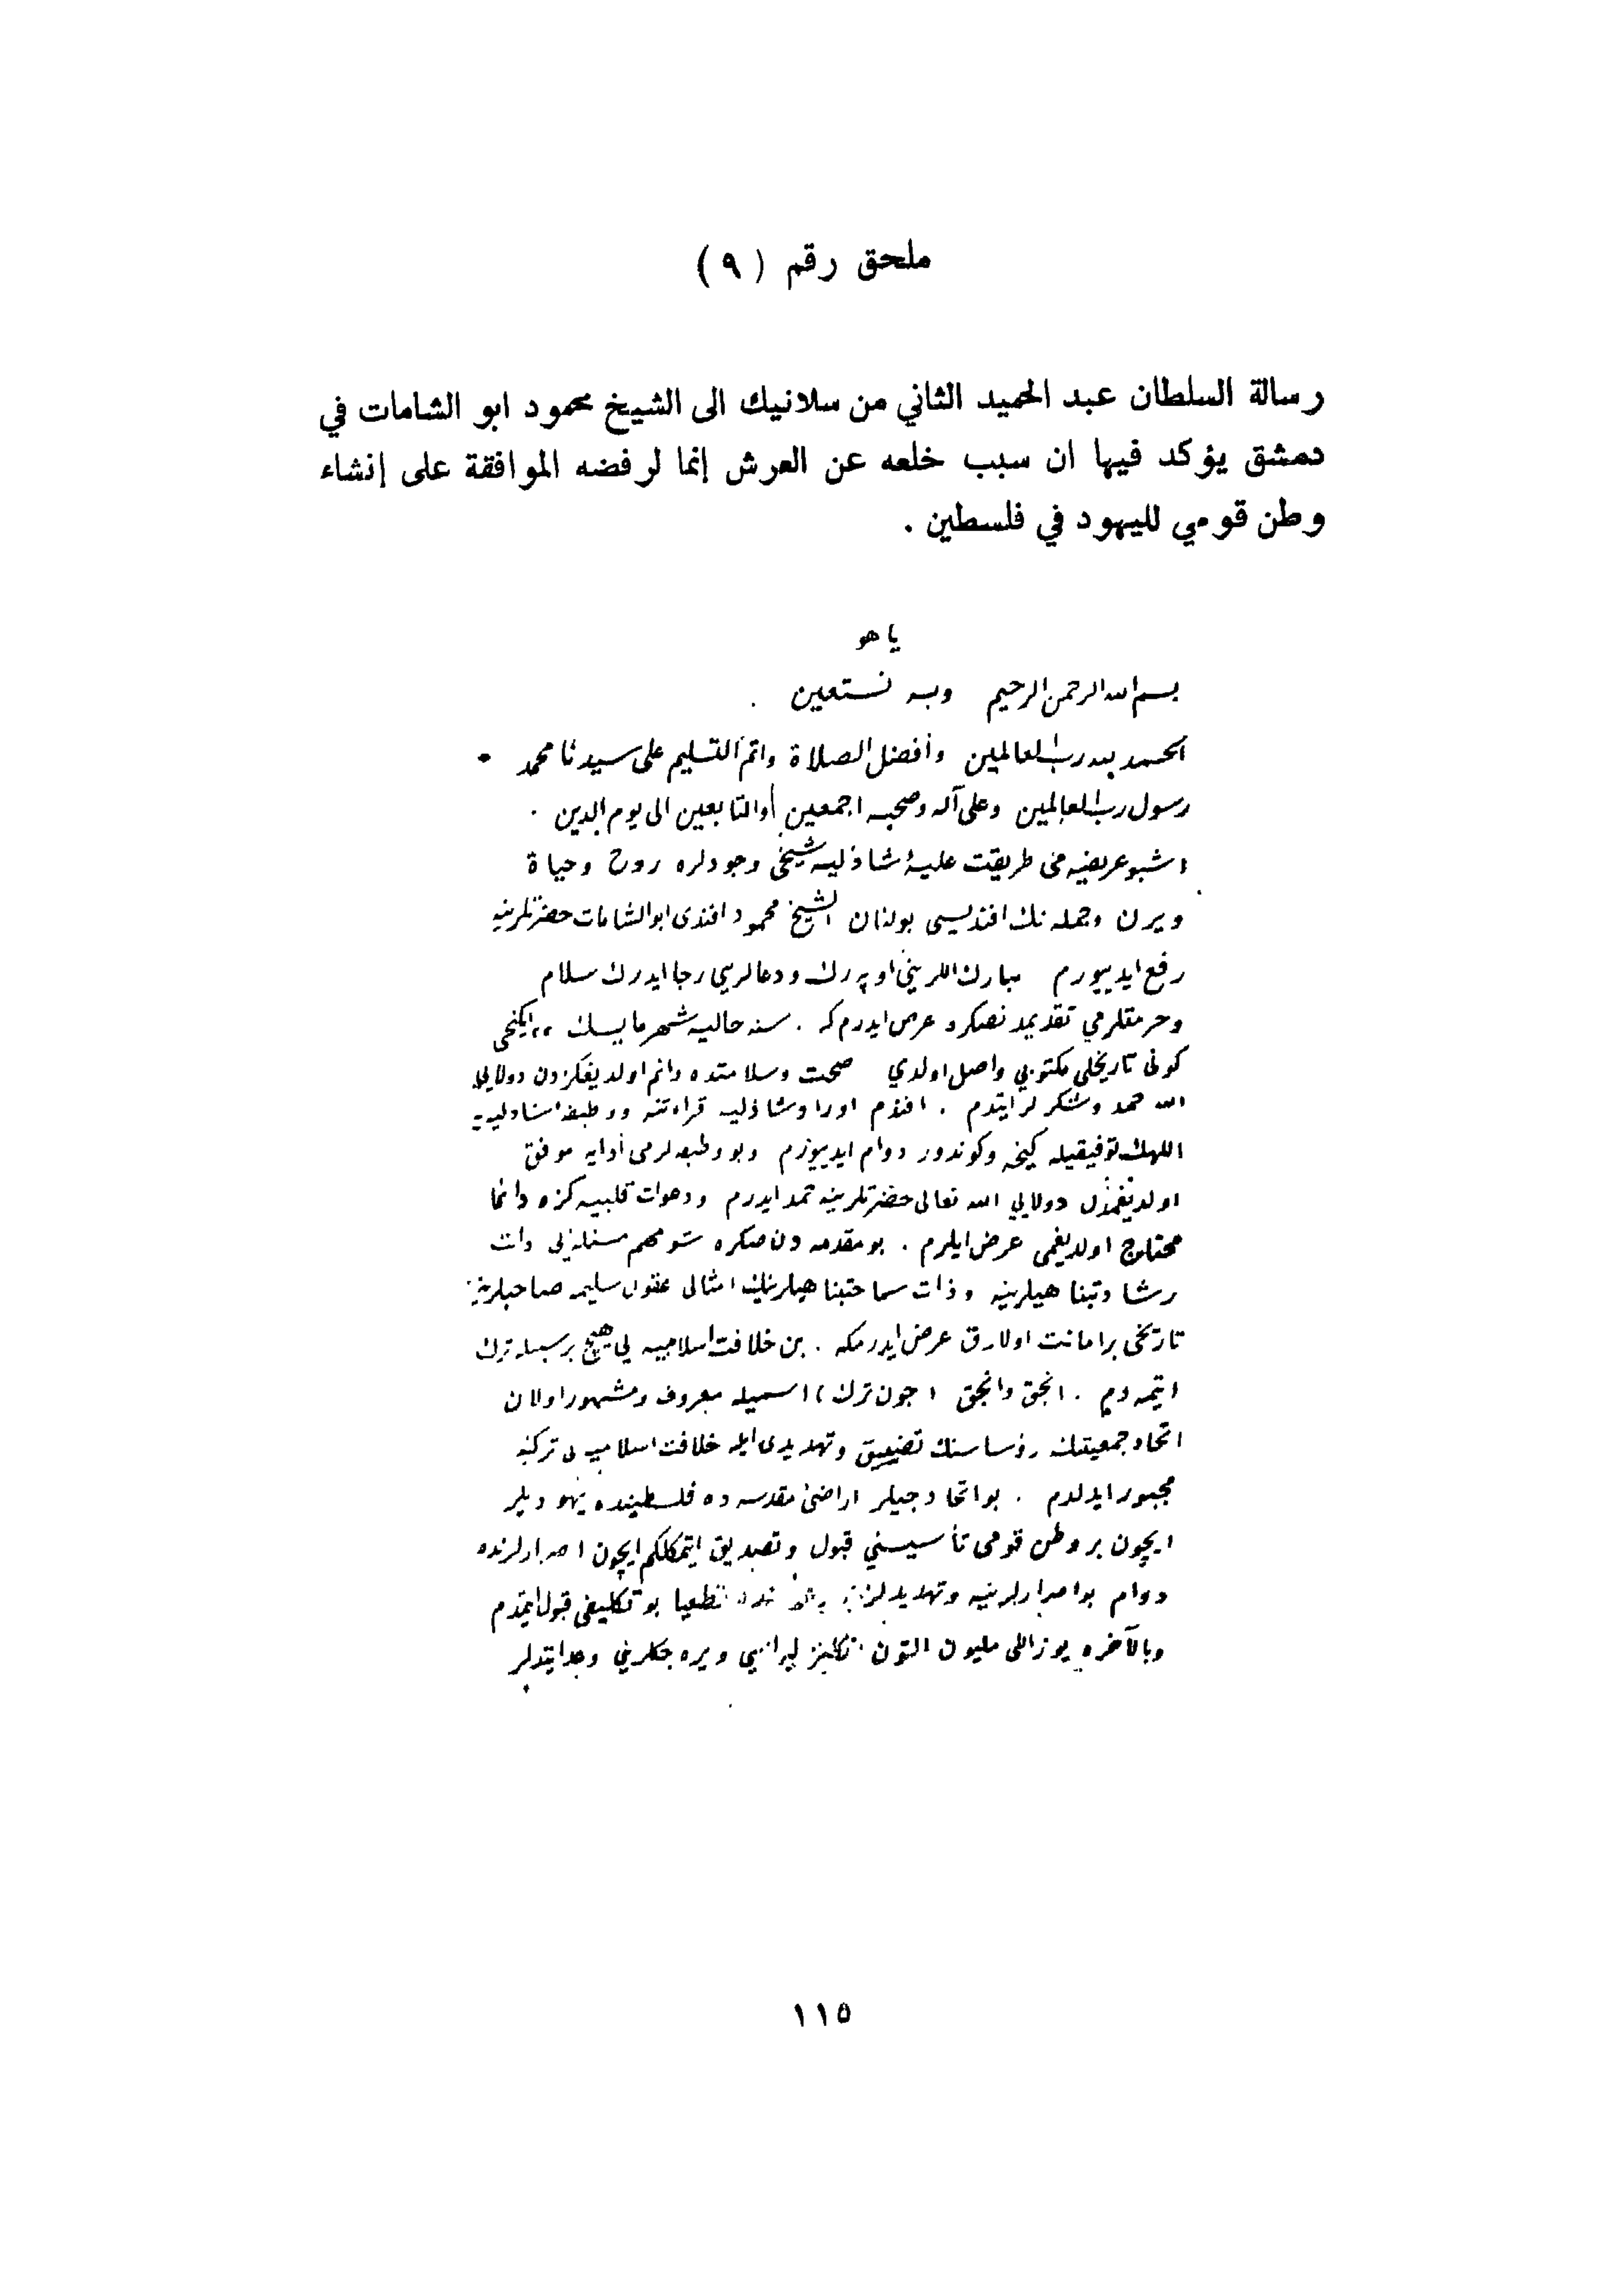 ملحق رقم ( ٩ )
رسالة السلطان عبد الحميد الثاني من سلانيك الى الشيخ محمود ابو الشامات في
دمشق يؤكد فيها ان سبب خلعه عن العرش إنما لرفضه الموافقة على إنشاء
وطن قومي لليهود في فلسطين .
يا هو
بسم الله الرحمن الرحيم وبه نستعين .
الحمد لله رب العالمين وأفضل الصلاة واتم التسليم على سيدنا محمد
رسول رب العالمين وعلى آله وصحبه اجمعين والتابعين الى يوم الدين .
اشبو عريضه مى طريقت عليۀ شاذليه شيخى وجودلره روح وحياة
ويرن وجمله نك افنديسى بولنان الشيخ محمود افندى ابو الشامات حضرتلرينه
رفع ايدييورم مبارك اللريني اوپه رك ودعالريي رجا ايدرك سلام
وحرمتلرمي تقديمدنصكره عرض ايدرم كه . سنه حاليه شهر مايسك ٢٢ ايكنجى
كونى تاريخلى مكتوبي واصل اولدي صحت وسلامتده دائم اولديغكزدن دولايى
الله حمد وشكرلر ايتدم . افندم اوراد شاذليه قراءتنه ووظيفه شاذليه يه
اللهك توفيقيله كيجه وكوندوز دوام ايدييورم وبو وظيفه لرمى أدايه موفق
اولديغمدن دولايي الله تعالى حضرتلرينه حمد ايدرم ودعوات قلبيه كزه دائما
محتاج اولديغمى عرض ايلرم . بو مقدمه دن صكره شو مهم مسئله يى ذات
رشادتپناهيلرينه وذات سماحتپناهيلرينك امثالى عقول سليمه صاحبلرينه
تاريخى بر امانت اولارق عرض ايدرمكه . بن خلافت اسلاميه يي هيچ بر سببله ترك
ايتمه دم . انجق وانجق ( جون ترك ) اسميله معروف ومشهور اولان
اتحاد جمعيتنك رؤساسنك تضييق وتهديدى ايله خلافت اسلاميه يى تركه
مجبور ايدلدم . بو اتحادجيلر اراضئ مقدسه ده فلسطينده يهوديلر
ايچون بر وطن قومى تأسيسني قبول وتصديق ايتمكلكم ايچون اصرارلرنده
دوام بو اصرارلرينه وتهديدلرينه قطعيا بو تكليفى قبول ايتمدم
وبالآخره يوز اللى مليون التون انكليز ليراسي ويره جكلريني وعد ايتديلر
١١٥